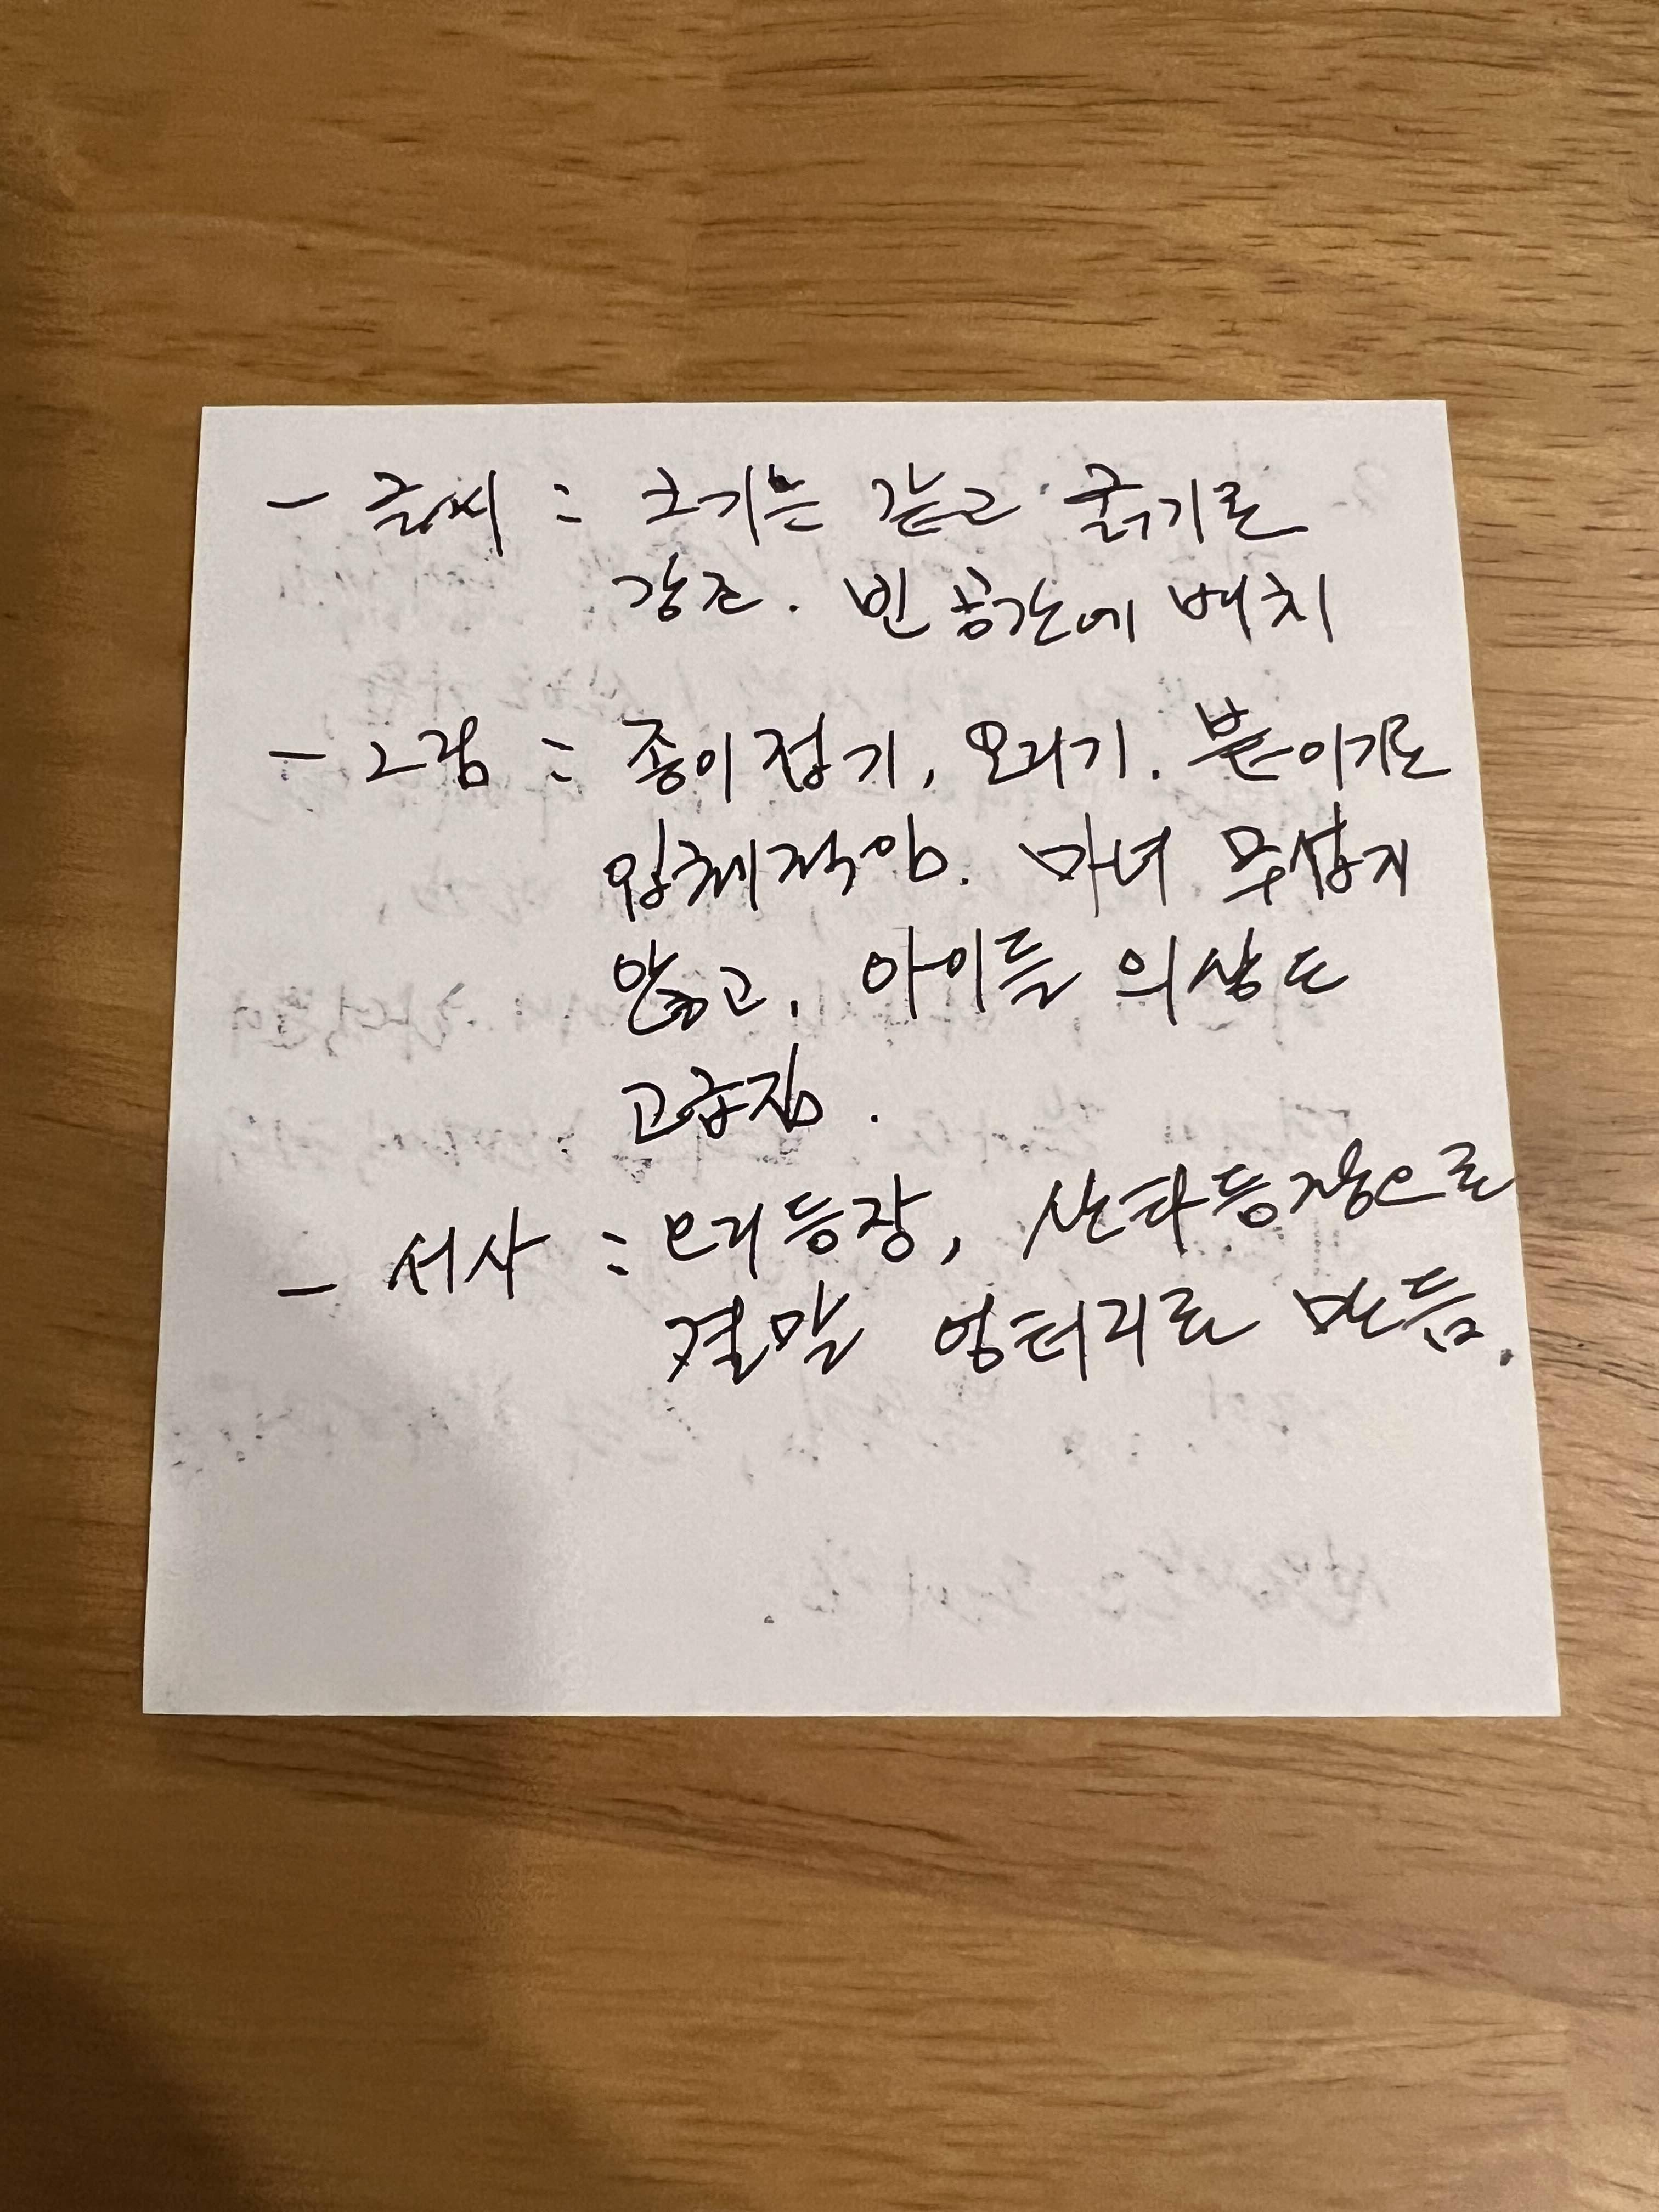 - 글씨 : 크기는 같고 굵기로
강조. 빈 공간에 배치
- 그림 : 종이접기, 오리기. 붙이기로
입체적임. 마녀 무섭지
않고, 아이들 의상도
고급짐.
- 서사 : 오리등장, 산타등장으로
결말 엉터리로 만듦.